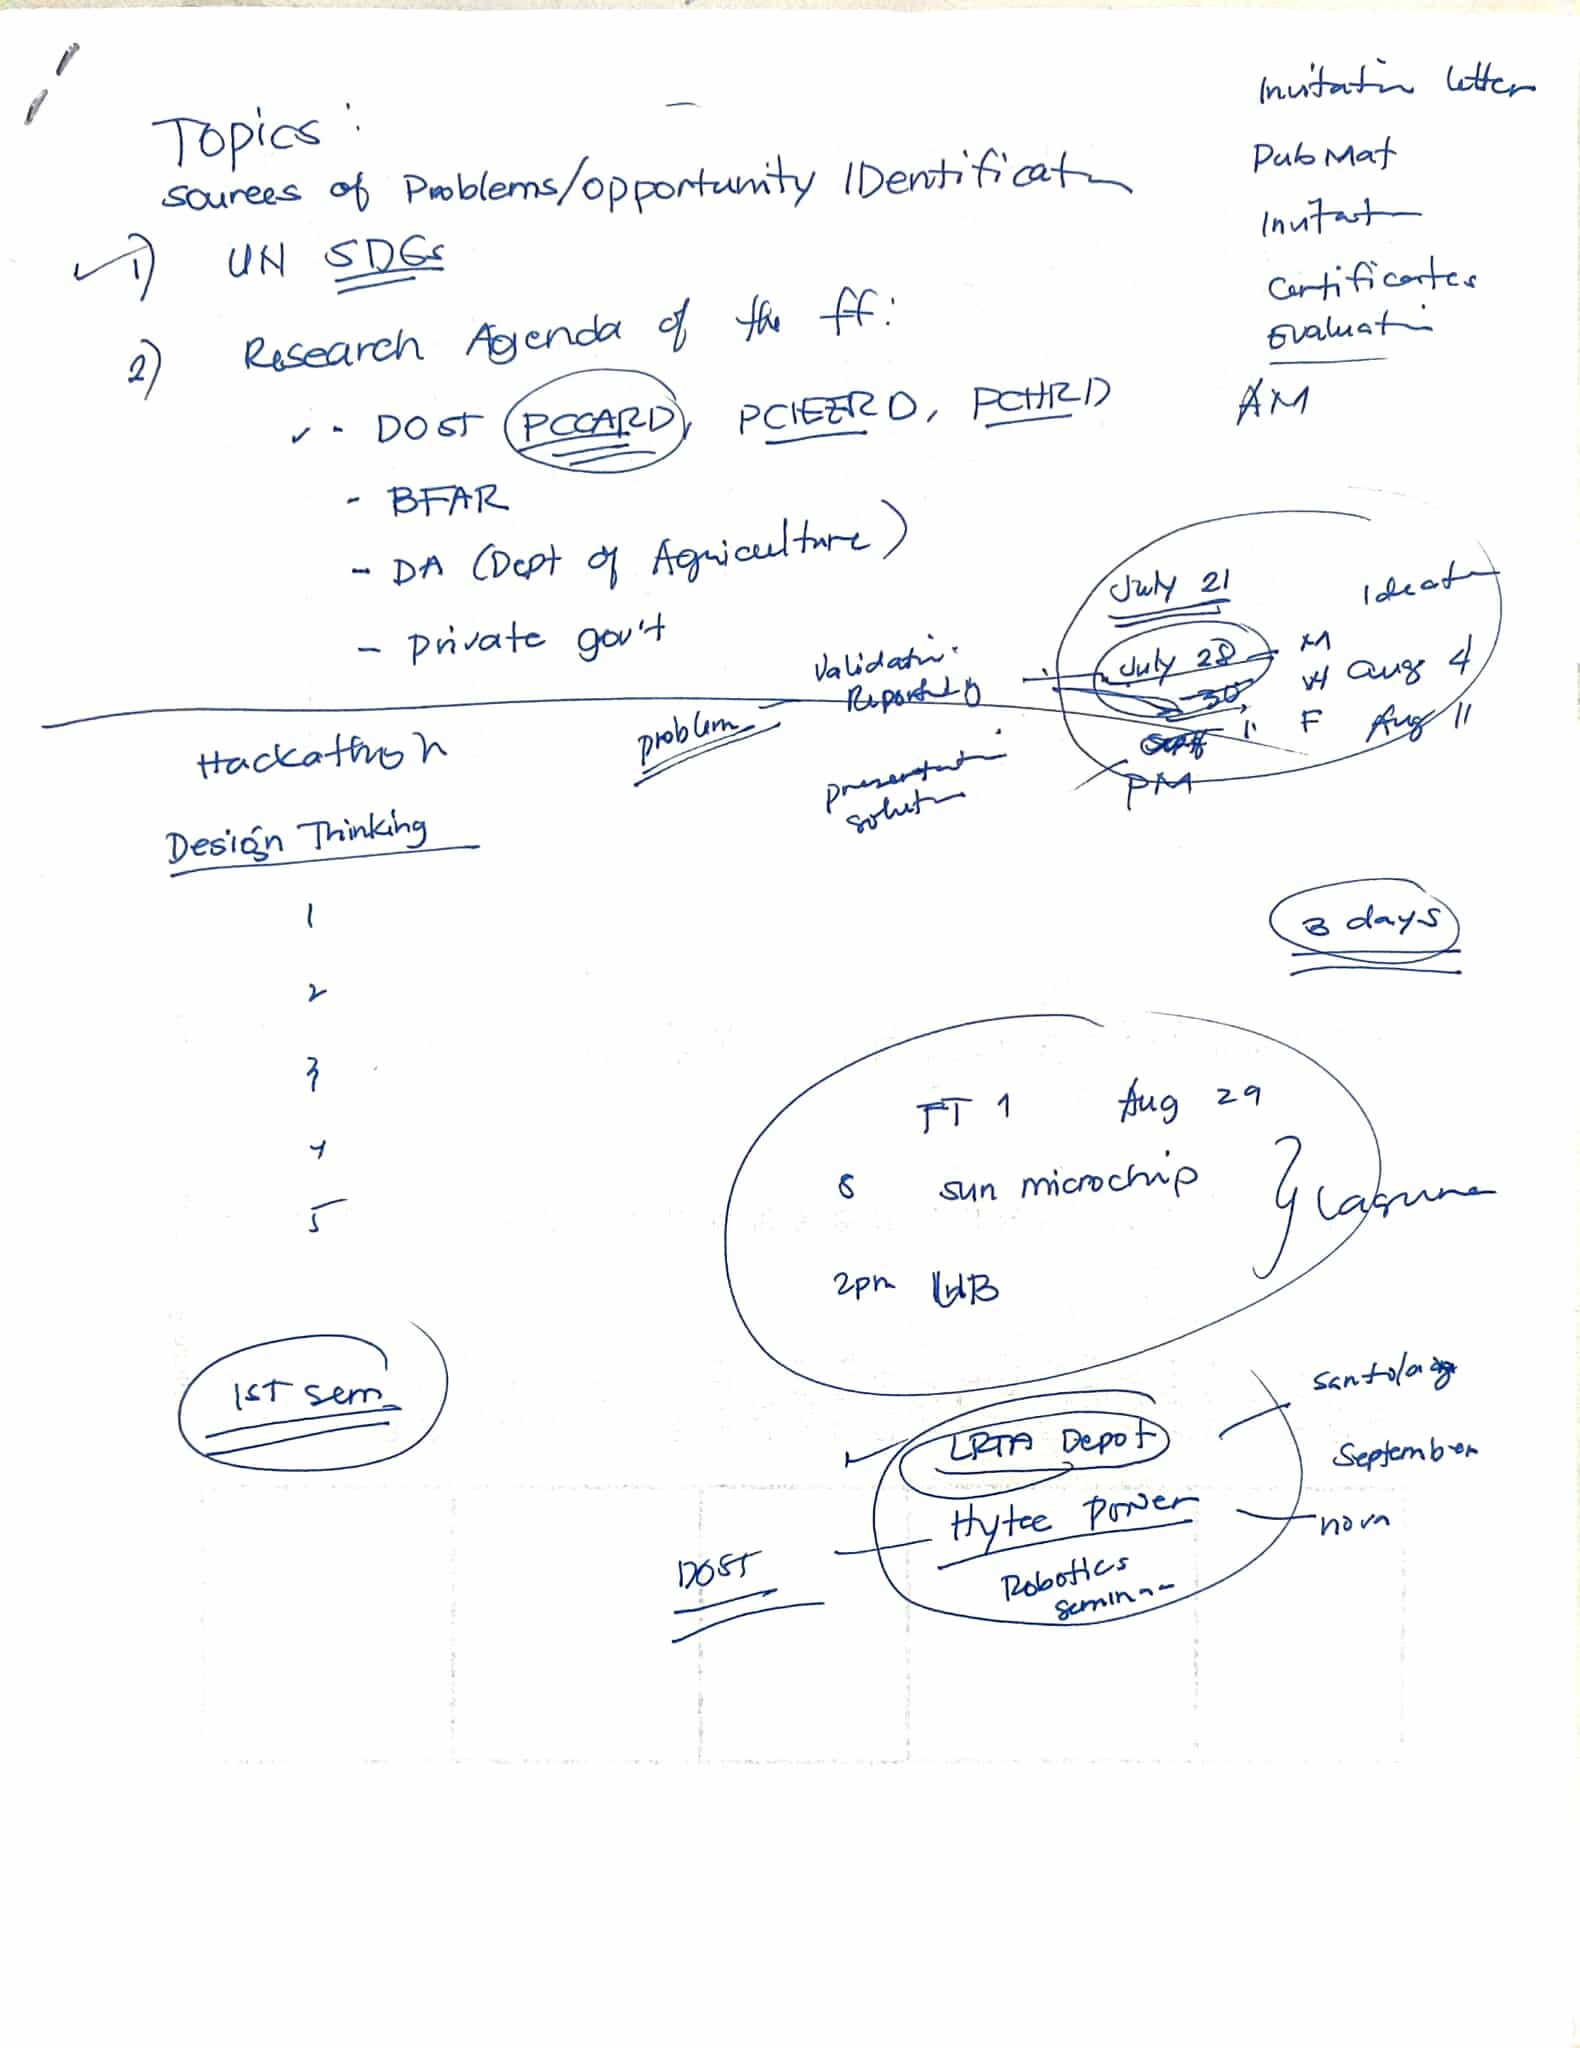 Topics:
sources of Problems/opportunity IDentificatn
1) UN SDGs
2) Research Agenda of the ff:
- DOST PCCARD, PCIEERD, PCHRD
- BFAR
- DA (Dept of Agriculture)
- private gov't
Invitatin letter
PubMat
Invitat
Certificates
Evaluati
AM
July 21 Ideatn
July 28 M
30 W Aug 4
1 F Aug 11
PM
Validatin
problem
presentati
solutn
Hackathon
Design Thinking
1
2
3
4
5
3 days
FT 1 Aug 29
8 sun microchip
Laguna
2pm
1ST sem
LRTA Depot
Santolan
September
Hytec Power
nova
Robotics
semin
DOST